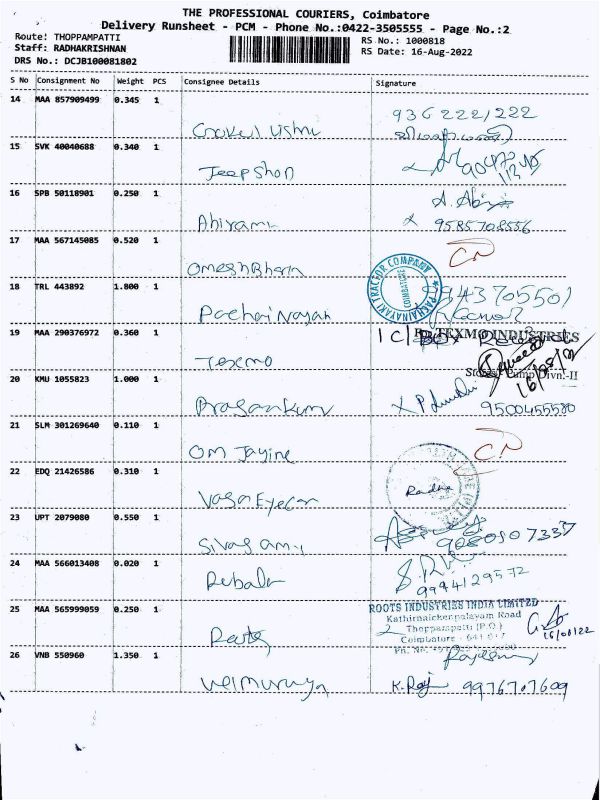 THE PROFESSIONAL COURIERS, Coimbatore
Delivery Runsheet - PCM - Phone No.:0422-3505555 - Page No.:2
Route: THOPPAMPATTI
RS No.: 1000818
Staff: RADHAKRISHNAN
RS Date: 16-Aug-2022
DRS No.: DCJB100081802
S No Consignment No Weight PCS Consignee Details Signature
14 MAA 857909499 0.345 1
936 222/222
15 SVK 40040688 0.340 1
Jeepshon
16 SPB 50118901 0.250 1
A. Abi
Abirami
9585708556
17 MAA 567145085 0.520 1
OmeshBharn
18 TRL 443892 1.800 1
PACHAINAYAKI TRACTOR COMPANY
COIMBATORE
9943705501
PachaiNayak
19 MAA 290376972 0.360 1
TEXMO INDUSTRIES
Texmo
Divn.-II
16/08/22
20 KMU 1055823 1.000 1
9500455580
21 SLM 301269640 0.110 1
Om Jayine
22 EDQ 21426586 0.310 1
Radha
VasanEyecar
23 UPT 2079080 0.550 1
Sivagami
24 MAA 566013408 0.020 1
9994129572
25 MAA 565999059 0.250 1
ROOTS INDUSTRIES INDIA LIMITED
Kathirnaickenpalayam Road
Thoppampatti (P.O.)
Coimbatore
16/08/22
26 VNB 550960 1.350 1
Velmuruga
K. Raj 9976707609